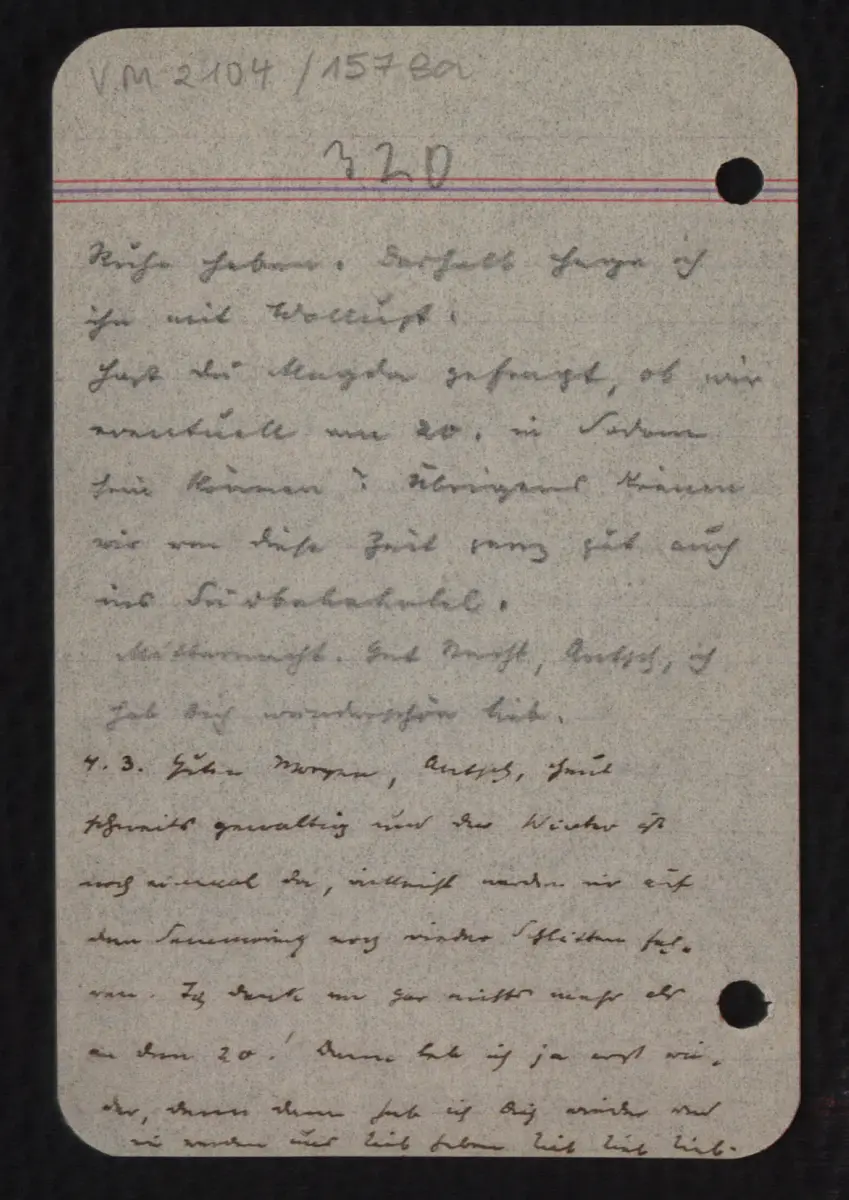 V.M 2104 / 157 8a
320
Ruhe haben. Deshalb hege ich
ihn mit Wollust.
Hast Du Magda gefragt, ob wir
eventuell am 20. in Sodom
sein können? Übrigens können
wir um diese Zeit ganz gut auch
ins Südbahnhotel.
Mitternacht. Gut Nacht, Antsch, ich
hab Dich wunderschön lieb.
4. 3. Guten Morgen, Antsch, heut
schneits gewaltig und der Winter ist
noch einmal da, vielleicht werden wir auf
dem Semmering noch wieder Schlitten fah-
ren. Ich denk an gar nichts mehr als
an den 20.! Dann leb ich ja erst wie-
der, denn dann hab ich Dich wieder und
wir werden uns lieb haben lieb lieb lieb.